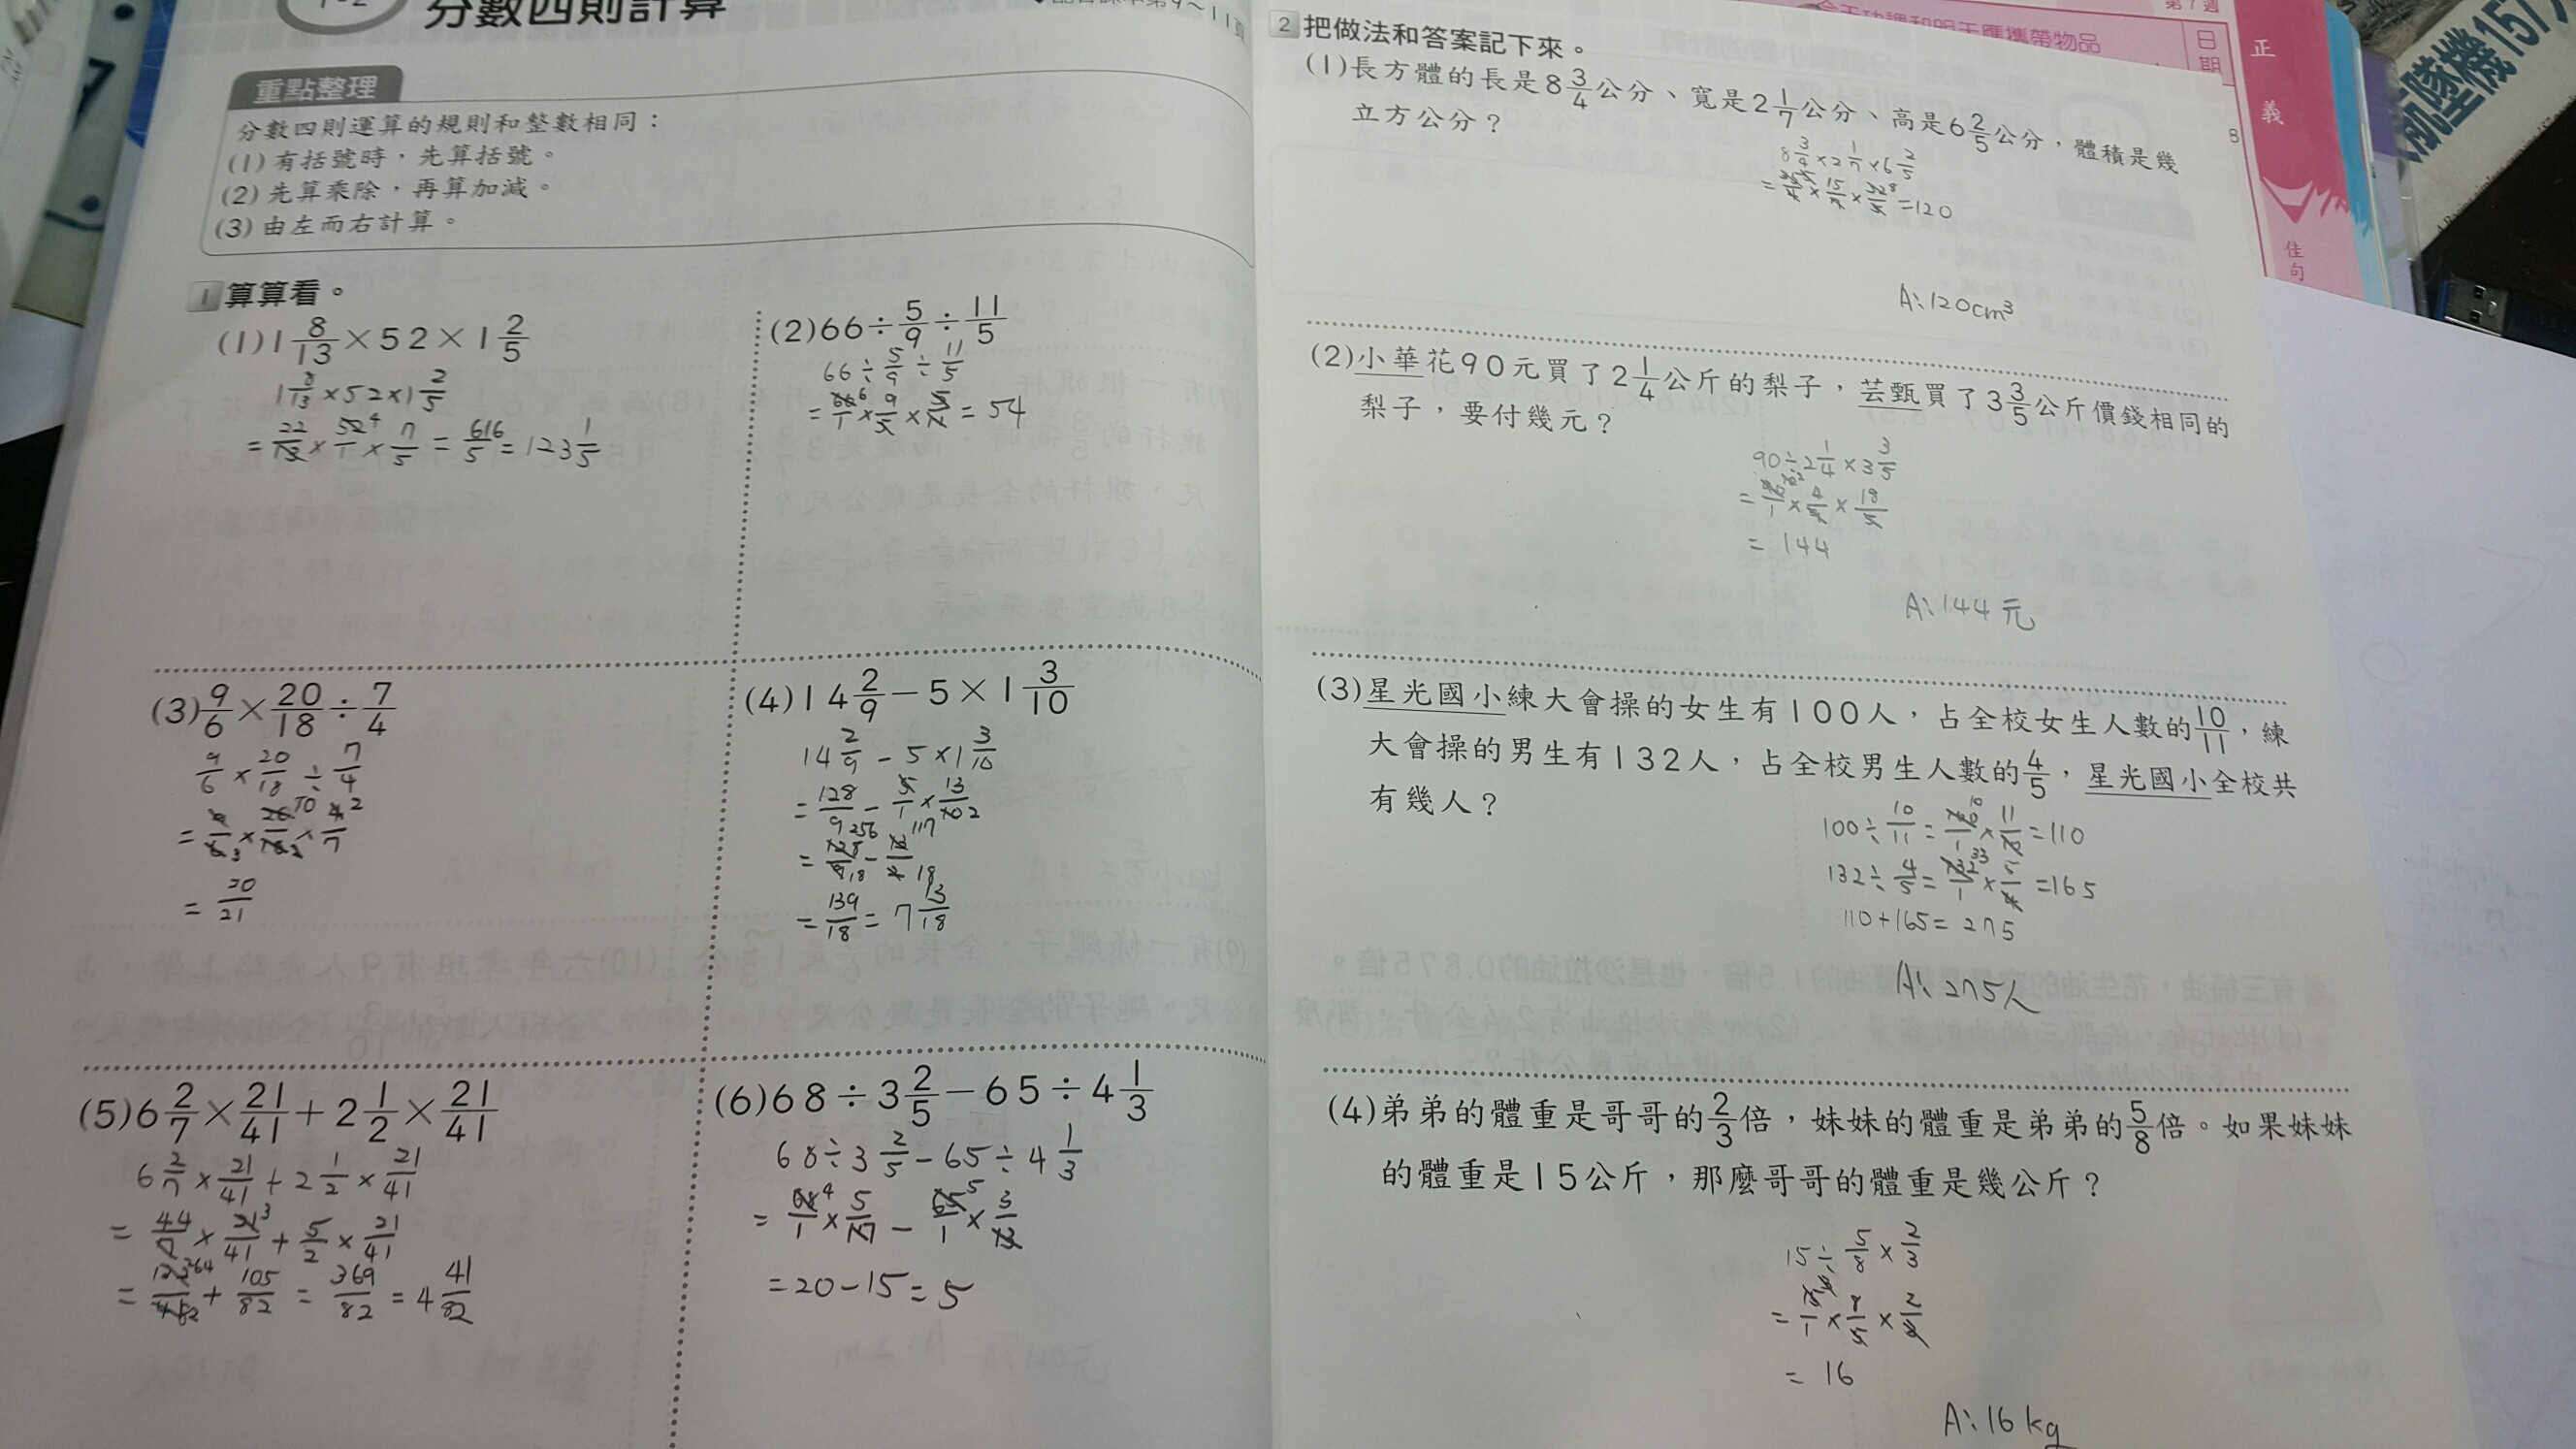 分數四則計算
重點整理
分數四則運算的規則和整數相同：
(1)有括號時，先算括號。
(2)先算乘除，再算加減。
(3)由左而右計算。
1 算算看。
(1)1 8/13×52×1 2/5
1 8/13×52×1 2/5
=22/13×52/1 4×7/5=616/5=123 1/5
(2)66÷5/9÷11/5
66÷5/9÷11/5
=66/1 6×9/5×5/11=54
(3)9/6×20/18÷7/4
9/6×20/18÷7/4
=9/6 3×20/18 10/2×4/7 2
=20/21
(4)14 2/9－5×1 3/10
14 2/9－5×1 3/10
=128/9－5/1×13/10 2
=128/9 256/18－13/2 117/18
=139/18=7 13/18
(5)6 2/7×21/41＋2 1/2×21/41
6 2/7×21/41+2 1/2×21/41
=44/7×21/41 3+5/2×21/41
=132/41 264/82+105/82=369/82=4 41/82
(6)68÷3 2/5－65÷4 1/3
68÷3 2/5－65÷4 1/3
=68/1 4×5/17－65/1 5×3/13
=20－15=5
2 把做法和答案記下來。
(1)長方體的長是8 3/4公分、寬是2 1/7公分、高是6 2/5公分，體積是幾
立方公分？
8 3/4×2 1/7×6 2/5
=35/4 5×15/7×32/5 8=120
A:120cm³
(2)小華花90元買了2 1/4公斤的梨子，芸甄買了3 3/5公斤價錢相同的
梨子，要付幾元？
90÷2 1/4×3 3/5
=90/1×4/9×18/5
=144
A:144元
(3)星光國小練大會操的女生有100人，占全校女生人數的10/11，練
大會操的男生有132人，占全校男生人數的4/5，星光國小全校共
有幾人？
100÷10/11=100/1 10×11/10=110
132÷4/5=132/1 33×5/4=165
110+165=275
A:275人
(4)弟弟的體重是哥哥的2/3倍，妹妹的體重是弟弟的5/8倍。如果妹妹
的體重是15公斤，那麼哥哥的體重是幾公斤？
15÷5/8×2/3
=15/1×8/5×2/3
=16
A:16kg
第7週
今天功課和明天應攜帶物品
日期
正義
佳句